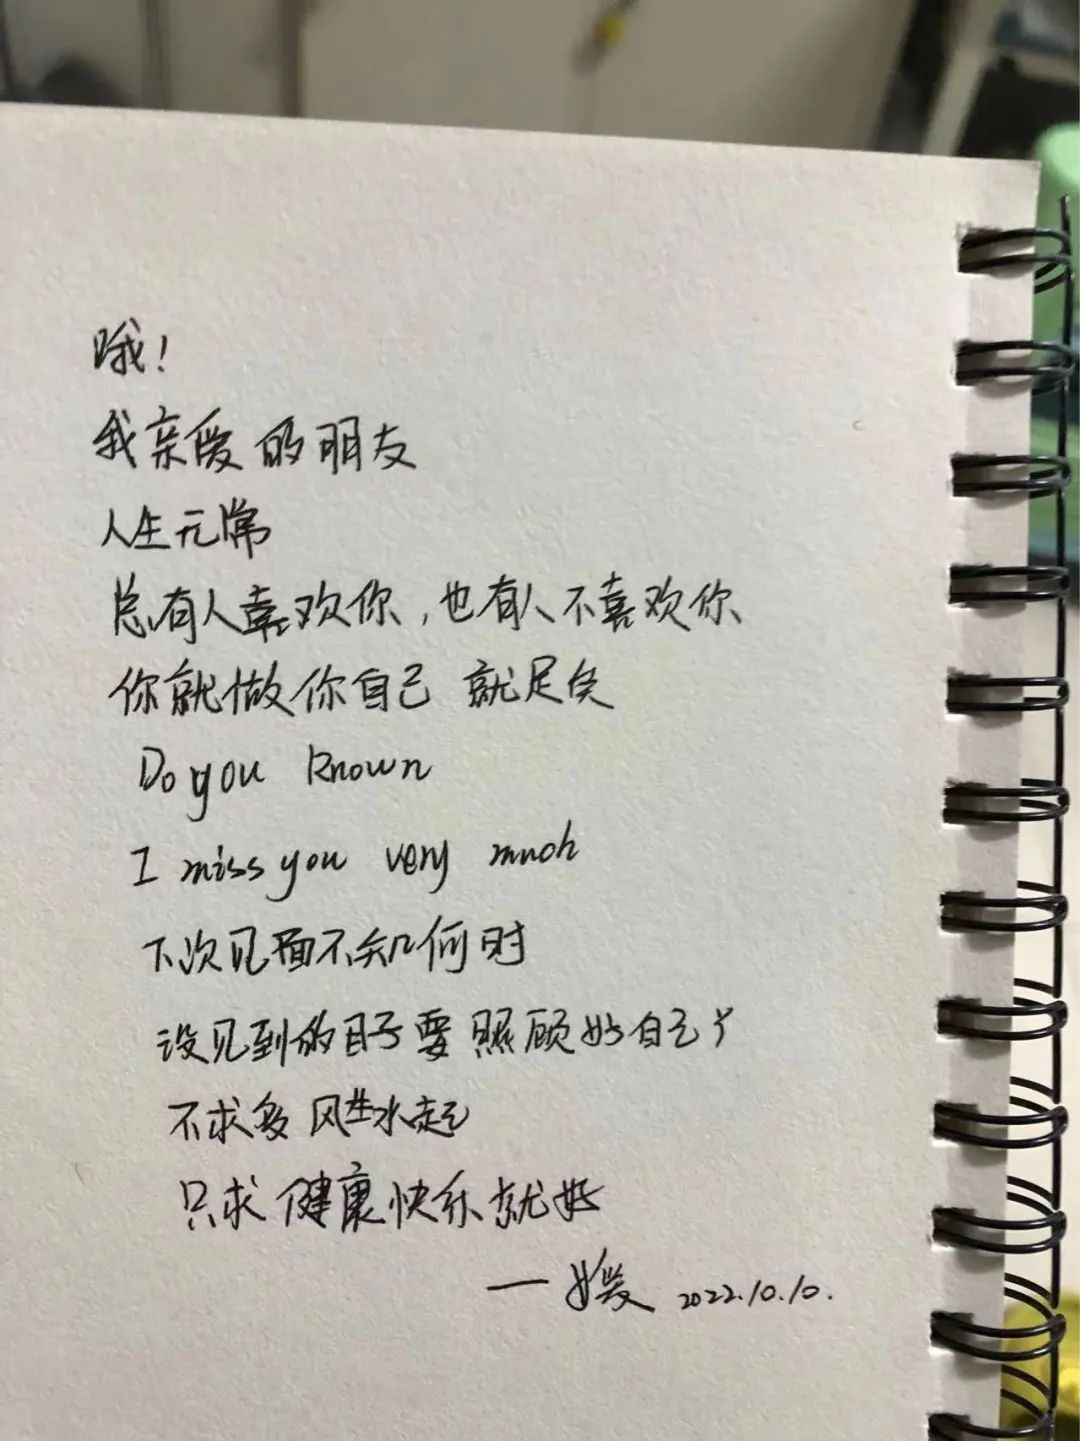 哦！
我亲爱的朋友
人生无常
总有人喜欢你，也有人不喜欢你
你就做你自己 就足矣
Do you known
I miss you very much
下次见面不知几何时
没见到的日子要照顾好自己丫
不求多风生水起
只求健康快乐就好
—媛 2022.10.10.